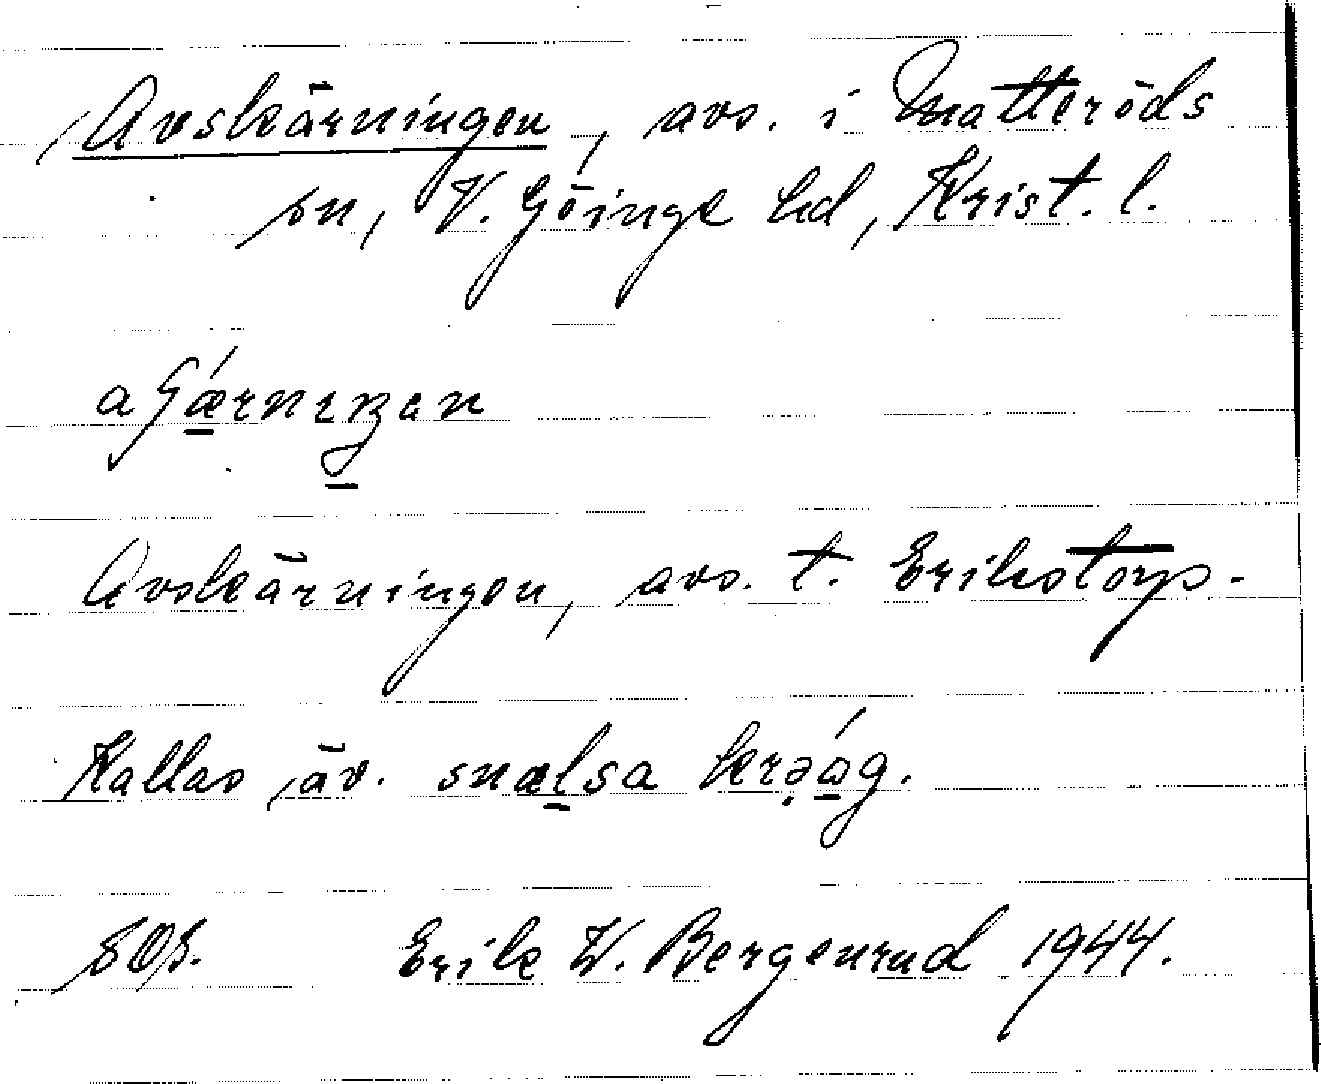 Avskärningen, avs. i Matteröds
sn, V. Göinge hd, Krist. l.
Avskärningen, avs. t. Erikstorp.
Kallas äv. snælsa
SOS. Erik W. Bergenrud 1944.